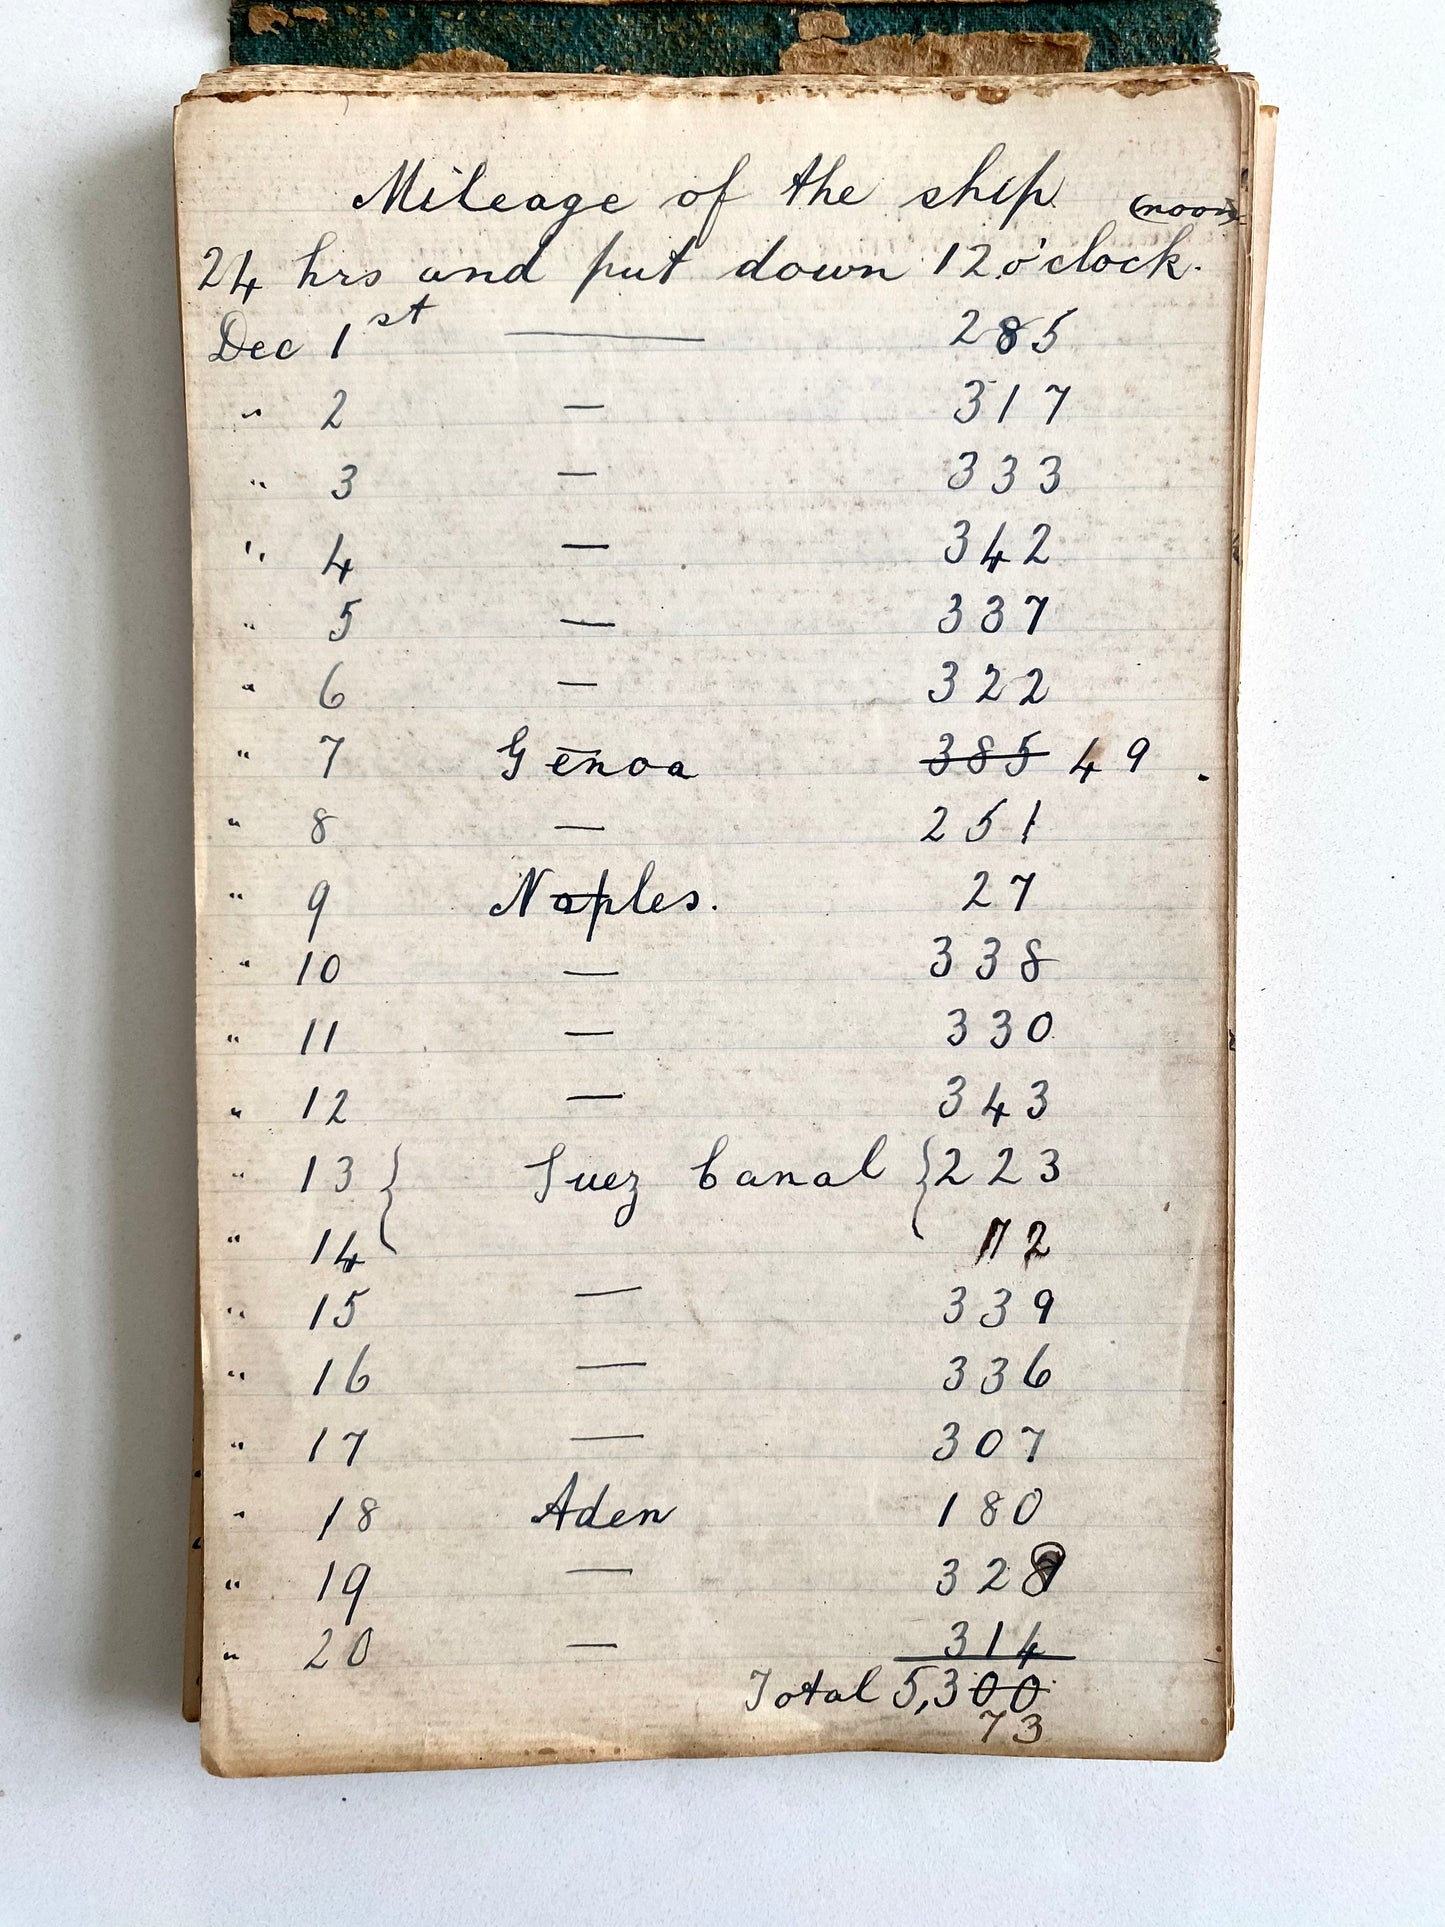 Mileage of the ship (noon)
24 hrs and put down 12 o'clock.
Dec 1st — 285
" 2 — 317
" 3 — 333
" 4 — 342
" 5 — 337
" 6 — 322
" 7 Genoa 385 49.
" 8 — 251
" 9 Naples. 27
" 10 — 338
" 11 — 330
" 12 — 343
" 13 { Suez Canal { 223
" 14 72
" 15 — 339
" 16 — 336
" 17 — 307
" 18 Aden 180
" 19 — 328
" 20 — 314
Total 5,300
73